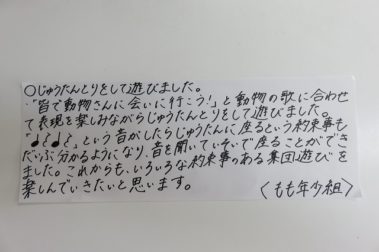 ○じゅうたんとりをして遊びました。
"皆で動物さんに会いに行こう!"と動物の歌に合わせ
て表現を楽しみながらじゅうたんとりをして遊びました。
"♩と♩と"という音がしたらじゅうたんに座るという約束事も
だいぶ分かるようになり、音を聞いていそいで座ることができ
ました。これからも、いろいろな約束事のある集団遊びを
楽しんでいきたいと思います。
〈もも年少組〉